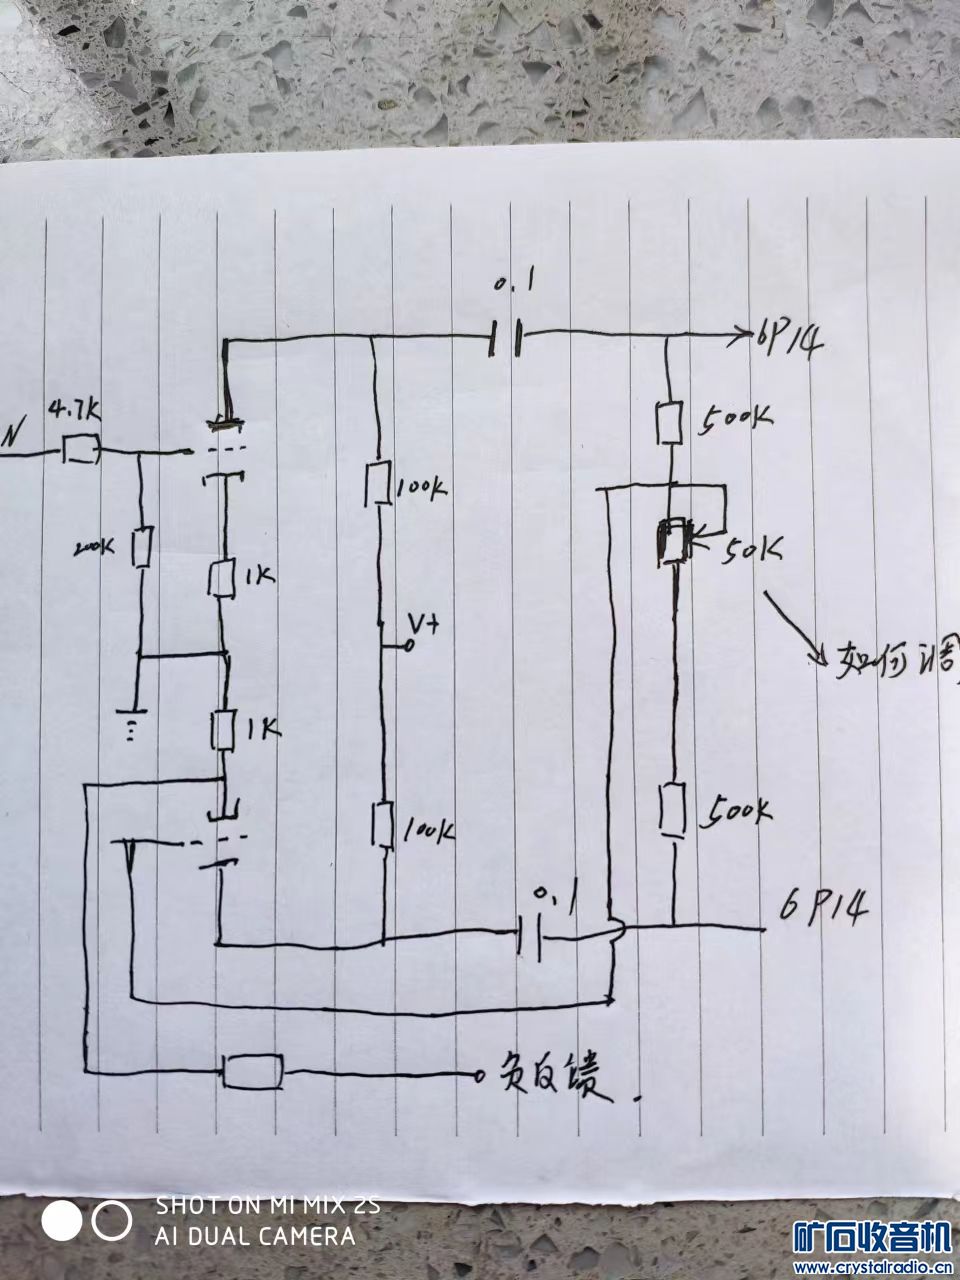 0.1
6P14
4.7K
N
500K
100K
50K
200K
1K
V+
如何调
1K
500K
100K
0.1
6P14
负反馈.
SHOT ON MI MIX 2S
AI DUAL CAMERA
矿石收音机
www.crystalradio.cn